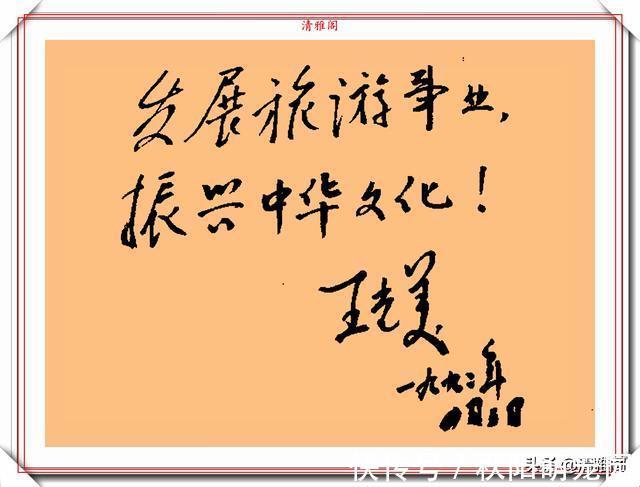 清雅阁
发展旅游事业,
振兴中华文化!
王光美
一九九二年
头条@清雅阁
快传号/